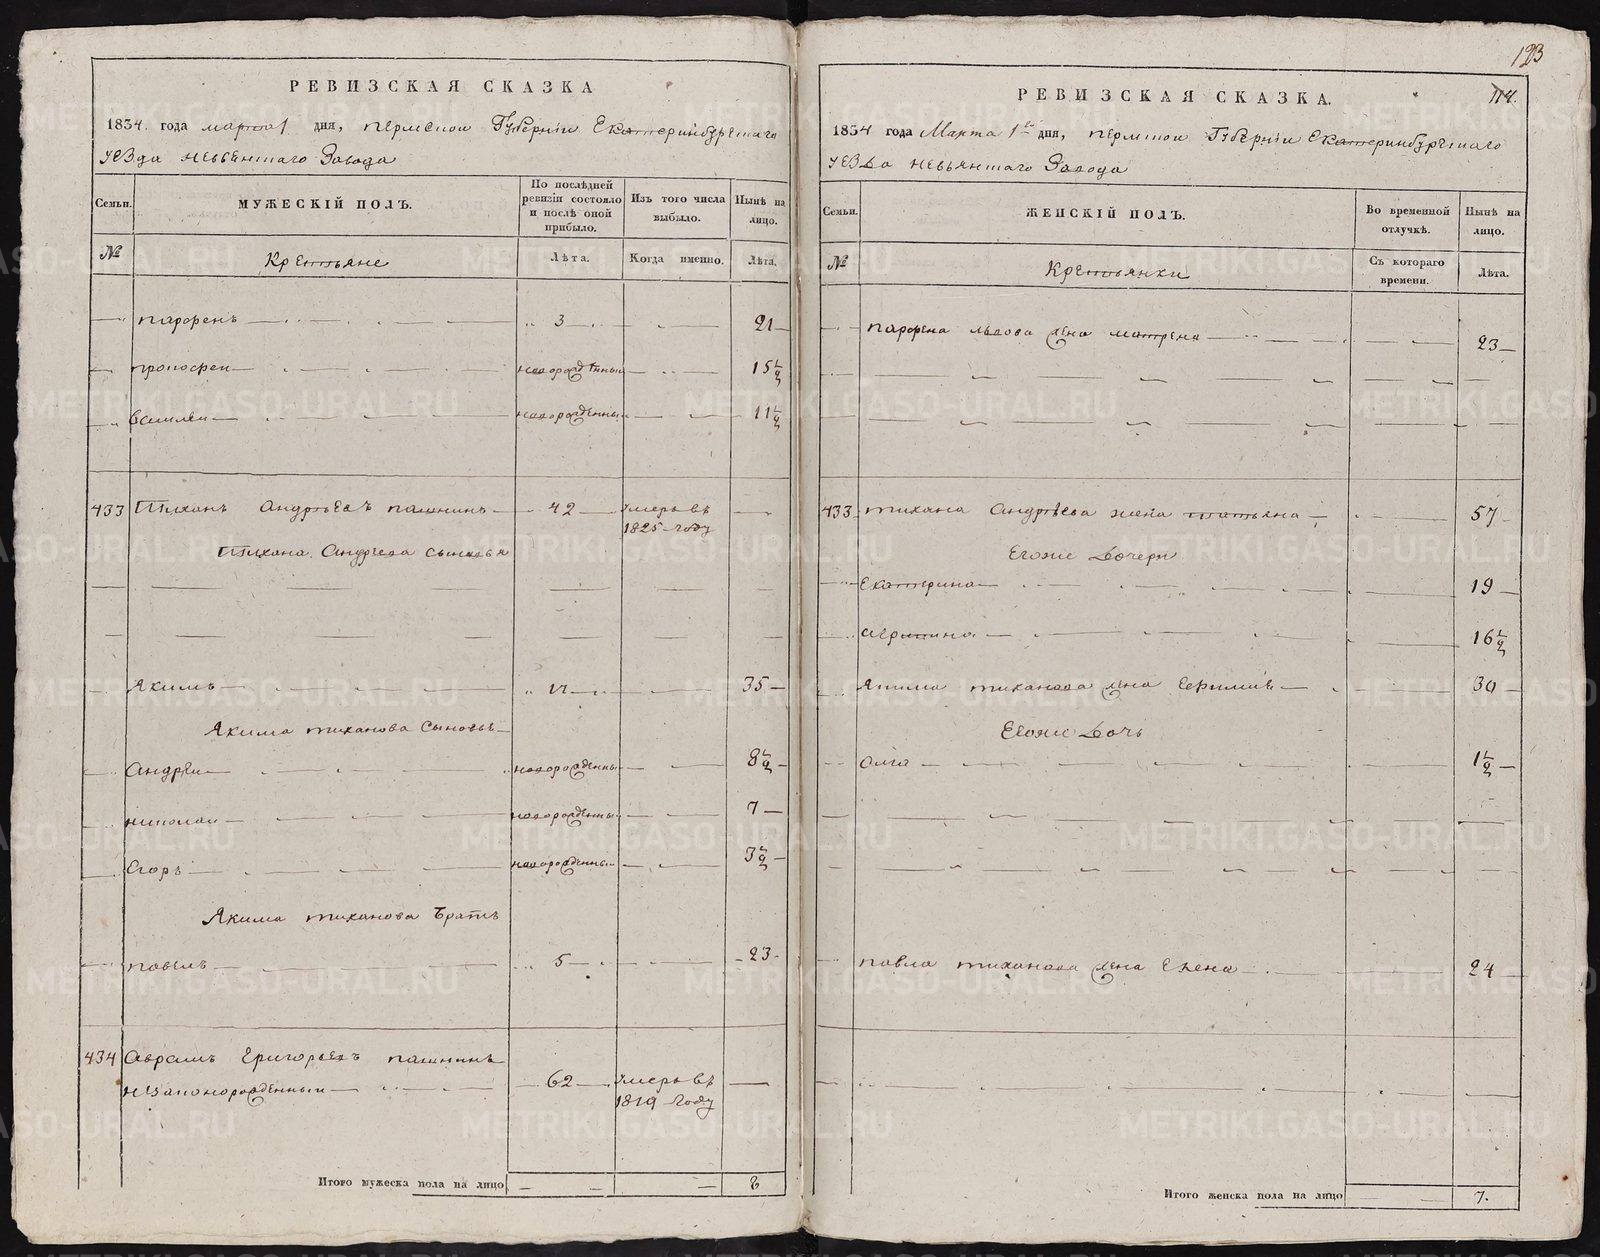 123
РЕВИЗСКАЯ СКАЗКА
1834. года марта 1 дня, пермскои Губернiи Екатеринбургскаго
уезда невьянскаго Завода
Семьи.
МУЖЕСКІЙ ПОЛЪ.
По послѣдней ревизіи состояло и послѣ оной прибыло.
Изъ того числа выбыло.
Нынѣ на лицо.
№
Крестьяне
Лѣта.
Когда именно.
Лѣта.
парфенъ 3 21
прокофеи новорожденныи 15½
василеи новорожденныи 11½
433 Тиханъ Андрѣевъ 42 умеръ въ
1825 году
Тихана Андреева сыновья
Якимъ 17 35
Якима тиханова сыновье
Андреи новорожденны 8½
николаи новорожденны 7
Егоръ новорожденны 3½
Якима тиханова братъ
павелъ 5 23
434 Аврамъ Григорьевъ
незаконорожденныи 62 умеръ въ
1819 году
Итого мужеска пола на лицо 8
РЕВИЗСКАЯ СКАЗКА.
114.
1834 года Марта 1го дня, пермскои Губернiи Екатеринбургскаго
уезда невьянскаго Завода
Семьи.
ЖЕНСКІЙ ПОЛЪ.
Во временной отлучкѣ.
Нынѣ на лицо.
№
Крестьянки
Съ котораго времени.
Лѣта.
парфена львова жена матрена 23
433 тихана Андрѣева жена татьяна 57
Егоже дочери
Екатерина 19
16½
Якима тиханова жена 30
Егоже дочь
Олга 1½
павла тиханова жена Елена 24
Итого женска пола на лицо 7.
METRIKI.GASO-URAL.RU